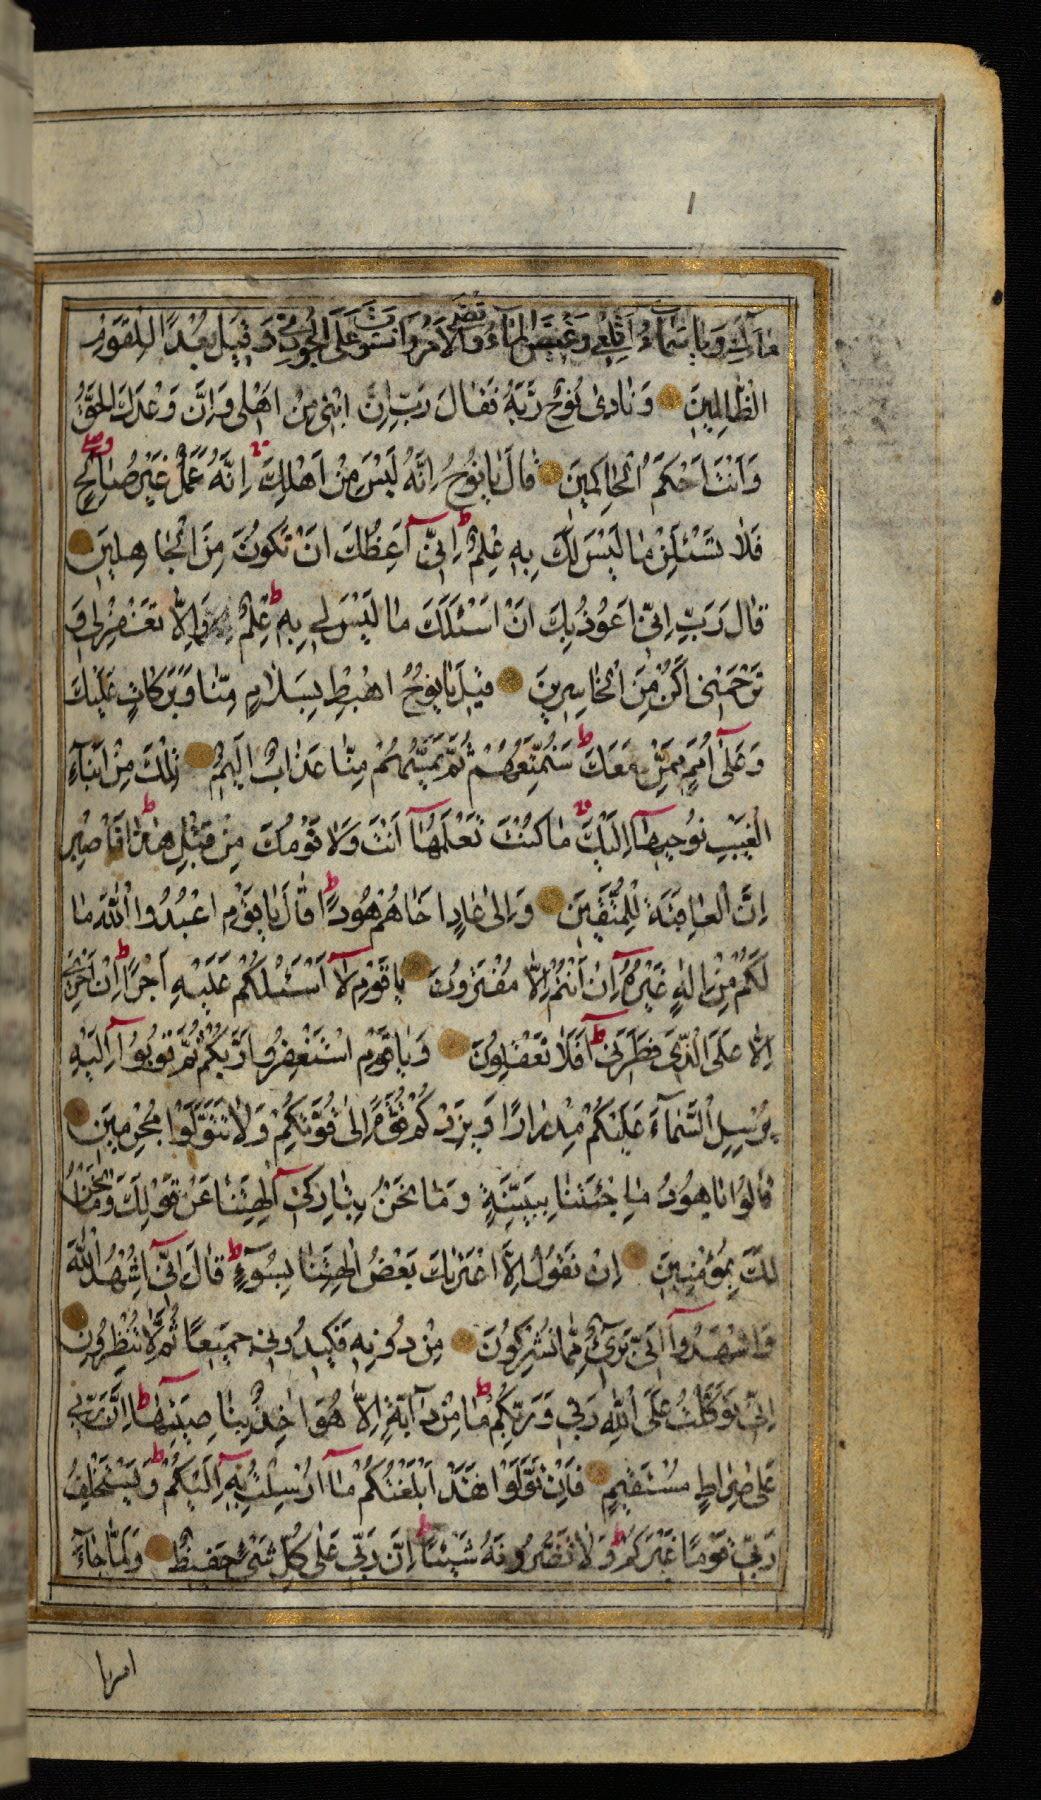 مَآءَكِ وَيَا سَمَآءُ اَقْلِعِى وَغِيضَ الْمَآءُ وَقُضِىَ الْاَمْرُ وَاسْتَوَتْ عَلَى الْجُودِىِّ وَقِيلَ بُعْدًا لِلْقَوْمِ
الظَّالِمِينَ وَنَادٰى نُوحٌ رَبَّهُ فَقَالَ رَبِّ اِنَّ ابْنِى مِنْ اَهْلِى وَاِنَّ وَعْدَكَ الْحَقُّ
وَاَنْتَ اَحْكَمُ الْحَاكِمِينَ قَالَ يَا نُوحُ اِنَّهُ لَيْسَ مِنْ اَهْلِكَ اِنَّهُ عَمَلٌ غَيْرُ صَالِحٍ
فَلَا تَسْئَلْنِ مَا لَيْسَ لَكَ بِهِ عِلْمٌ اِنِّى اَعِظُكَ اَنْ تَكُونَ مِنَ الْجَاهِلِينَ
قَالَ رَبِّ اِنِّى اَعُوذُ بِكَ اَنْ اَسْئَلَكَ مَا لَيْسَ لِى بِهِ عِلْمٌ وَاِلَّا تَغْفِرْ لِى وَ
تَرْحَمْنِى اَكُنْ مِنَ الْخَاسِرِينَ قِيلَ يَا نُوحُ اهْبِطْ بِسَلَامٍ مِنَّا وَبَرَكَاتٍ عَلَيْكَ
وَعَلٰى اُمَمٍ مِمَّنْ مَعَكَ سَنُمَتِّعُهُمْ ثُمَّ يَمَسُّهُمْ مِنَّا عَذَابٌ اَلِيمٌ تِلْكَ مِنْ اَنْبَآءِ
الْغَيْبِ نُوحِيهَا اِلَيْكَ مَا كُنْتَ تَعْلَمُهَا اَنْتَ وَلَا قَوْمُكَ مِنْ قَبْلِ هٰذَا فَاصْبِرْ
اِنَّ الْعَاقِبَةَ لِلْمُتَّقِينَ وَاِلٰى عَادٍ اَخَاهُمْ هُودًا قَالَ يَا قَوْمِ اعْبُدُوا اللّٰهَ مَا
لَكُمْ مِنْ اِلٰهٍ غَيْرُهُ اِنْ اَنْتُمْ اِلَّا مُفْتَرُونَ يَا قَوْمِ لَا اَسْئَلُكُمْ عَلَيْهِ اَجْرًا اِنْ اَجْرِىَ
اِلَّا عَلَى الَّذِى فَطَرَنِى اَفَلَا تَعْقِلُونَ وَيَا قَوْمِ اسْتَغْفِرُوا رَبَّكُمْ ثُمَّ تُوبُوا اِلَيْهِ
يُرْسِلِ السَّمَآءَ عَلَيْكُمْ مِدْرَارًا وَيَزِدْكُمْ قُوَّةً اِلٰى قُوَّتِكُمْ وَلَا تَتَوَلَّوْا مُجْرِمِينَ
قَالُوا يَا هُودُ مَا جِئْتَنَا بِبَيِّنَةٍ وَمَا نَحْنُ بِتَارِكِى اٰلِهَتِنَا عَنْ قَوْلِكَ وَمَا نَحْنُ
لَكَ بِمُؤْمِنِينَ اِنْ نَقُولُ اِلَّا اعْتَرٰيكَ بَعْضُ اٰلِهَتِنَا بِسُوٓءٍ قَالَ اِنِّى اُشْهِدُ اللّٰهَ
وَاشْهَدُوا اَنِّى بَرِىٓءٌ مِمَّا تُشْرِكُونَ مِنْ دُونِهِ فَكِيدُونِى جَمِيعًا ثُمَّ لَا تُنْظِرُونِ
اِنِّى تَوَكَّلْتُ عَلَى اللّٰهِ رَبِّى وَرَبِّكُمْ مَا مِنْ دَآبَّةٍ اِلَّا هُوَ اٰخِذٌ بِنَاصِيَتِهَا اِنَّ رَبِّى
عَلٰى صِرَاطٍ مُسْتَقِيمٍ فَاِنْ تَوَلَّوْا فَقَدْ اَبْلَغْتُكُمْ مَا اُرْسِلْتُ بِهِ اِلَيْكُمْ وَيَسْتَخْلِفُ
رَبِّى قَوْمًا غَيْرَكُمْ وَلَا تَضُرُّونَهُ شَيْئًا اِنَّ رَبِّى عَلٰى كُلِّ شَىْءٍ حَفِيظٌ وَلَمَّا جَآءَ
امرنا